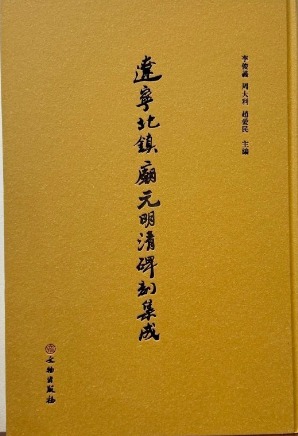 李俊義 周大利 趙愛民 主編
遼寧北鎮廟元明清碑刻集成
文物出版社